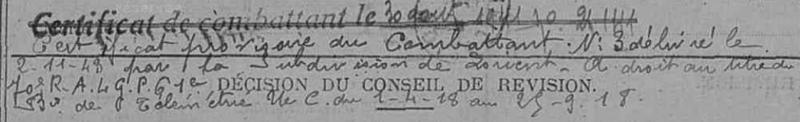 Certificat de combattant le 30 août
Certificat provisoire du Combattant N° 3 délivré le
2-11-48 par la Subdivision de Lorient. A droit au titre du
R.A.L.G.P. 61e DÉCISION DU CONSEIL DE REVISION.
de Télémétrie U.C. du 1-4-18 au 25-9-18.